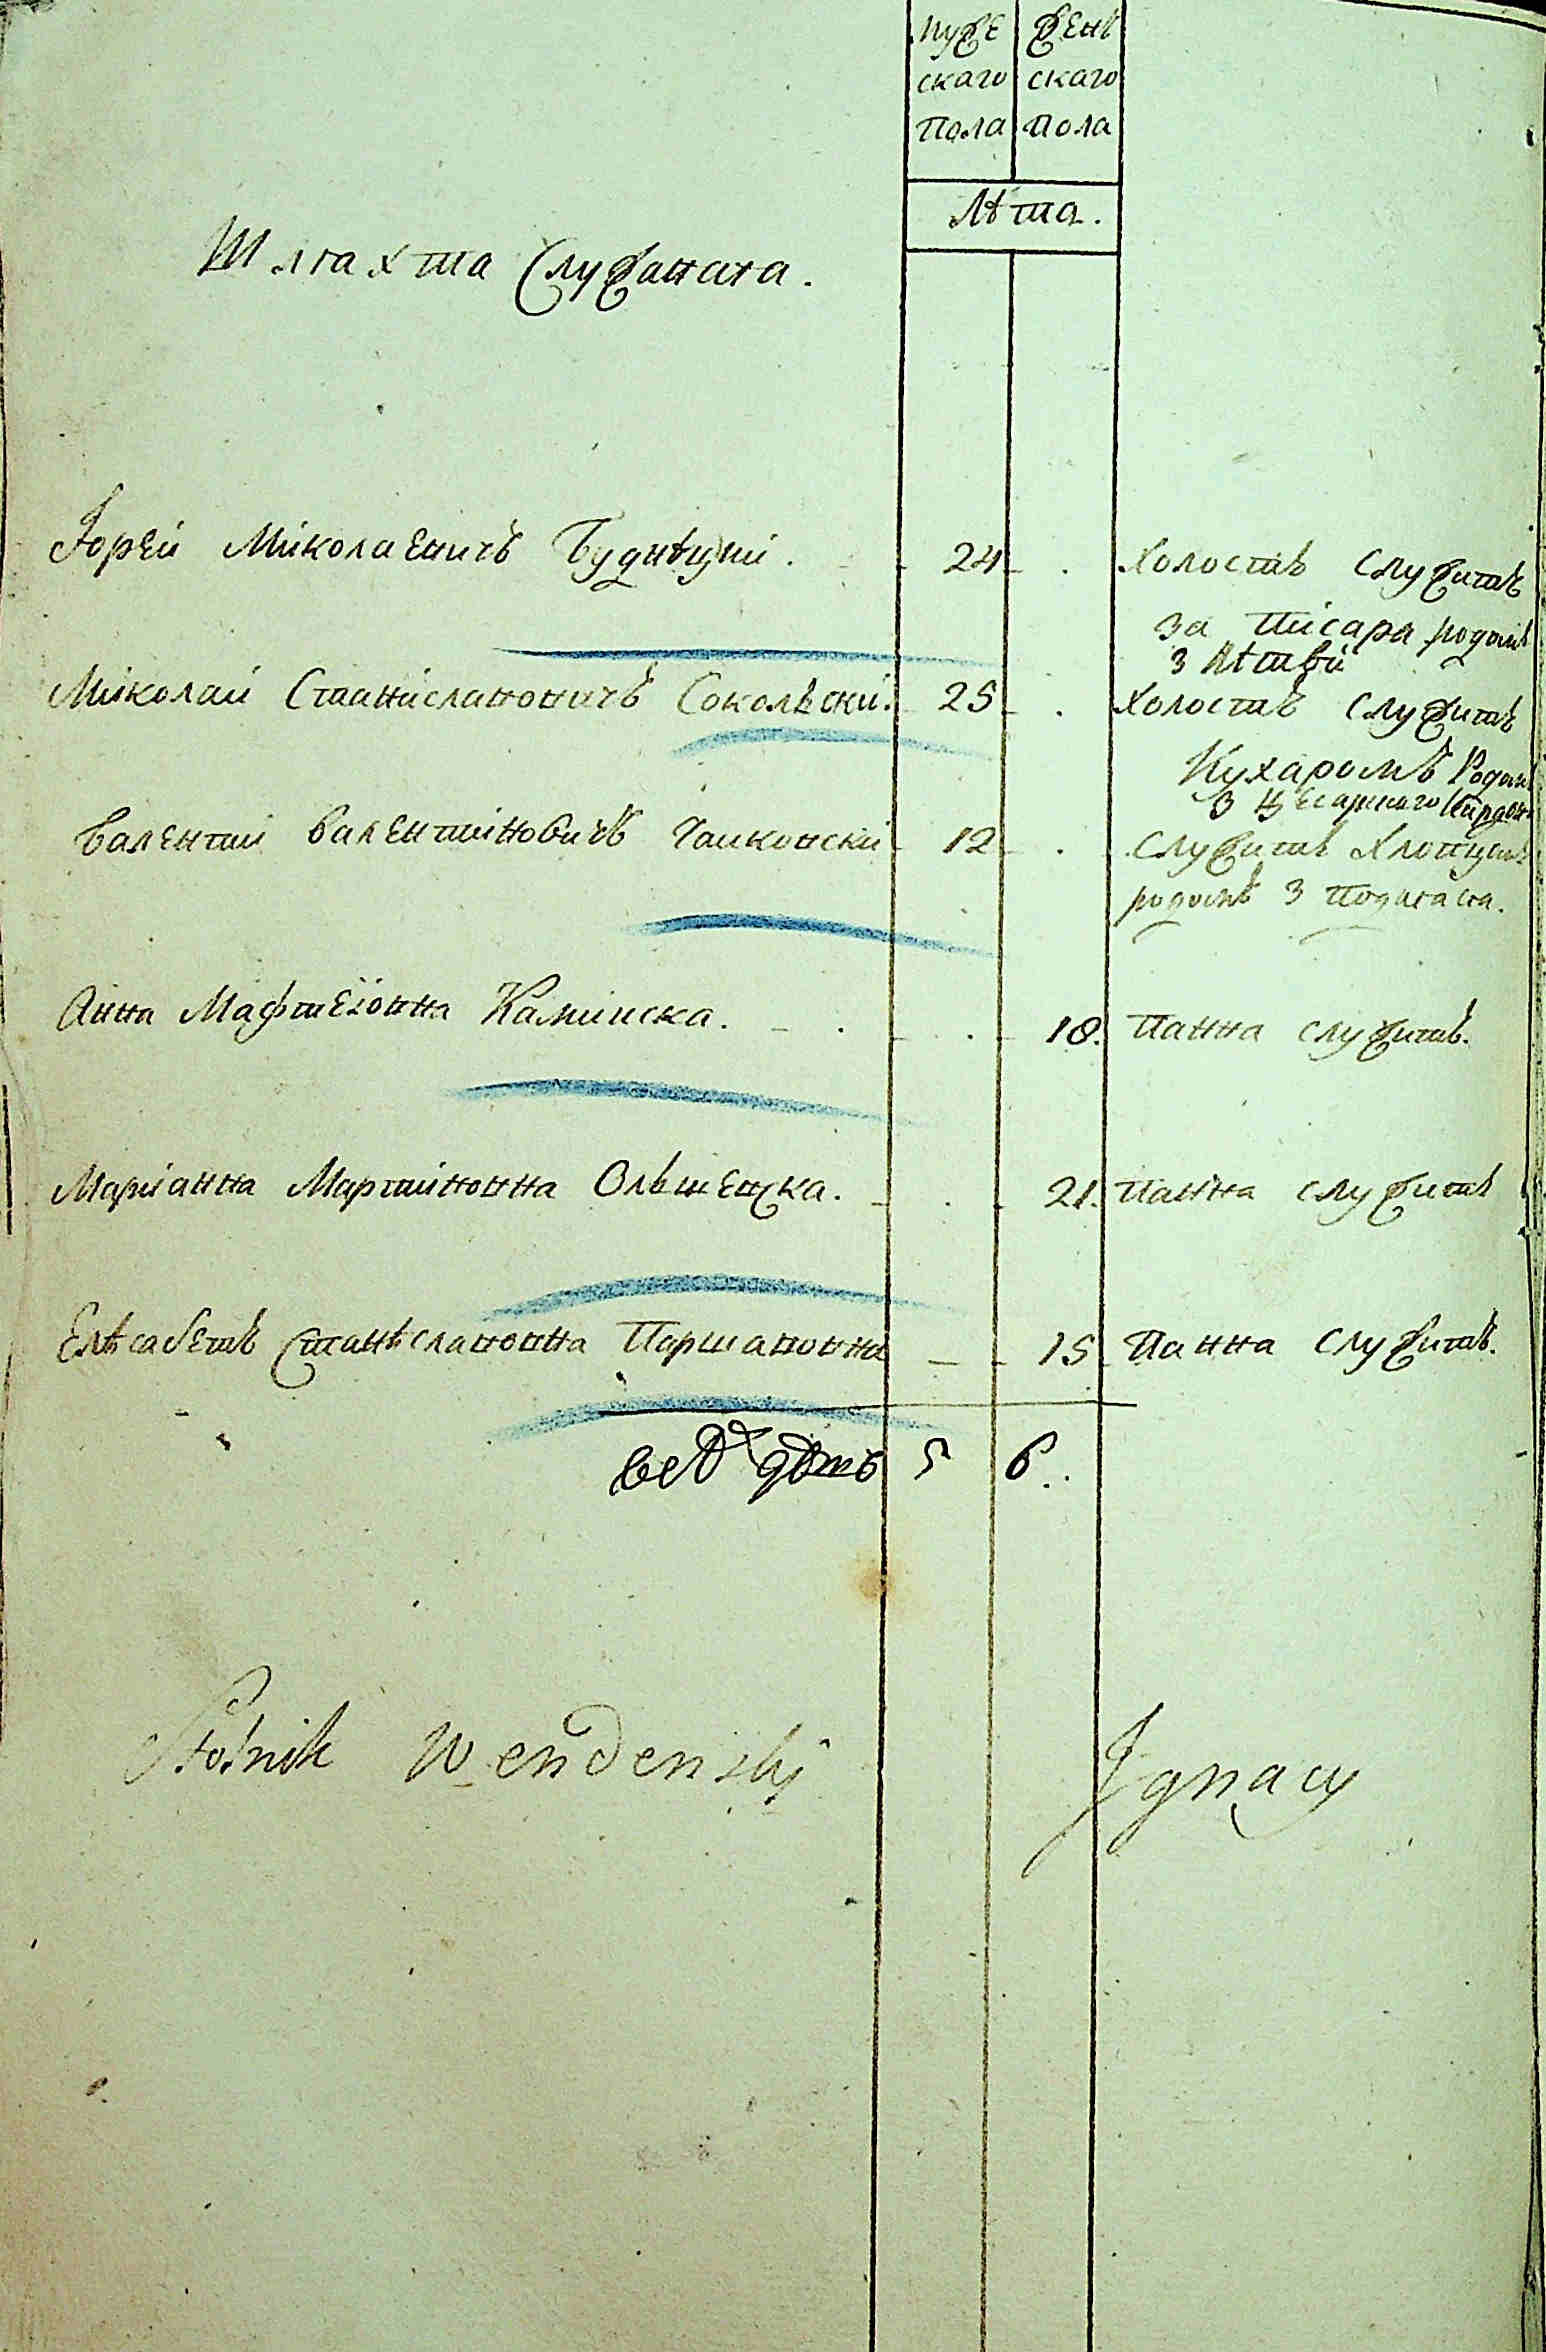 Муже Жень
скаго скаго
Пола Пола
Лѣта.
Шляхта Служаная.
Юрей Миколаевичъ Будніцкі. 24 Холостъ служитъ
за писара родомъ
з Літви
Міколай Станіславовичъ Сокольскі. 25 Холостъ служитъ
Кухаромъ Родомъ
з Цесарского
Валентій Валентіновичъ Чайковскі 12 служитъ Хлопцемъ
родомъ з
Анна Мафтеіовна Камінска. 18. Панна служитъ.
Маріанна Мартіновна Ольшевска. 21. Панна служитъ
Елѣсабетъ Станѣславовна Паршановна 15 Панна служитъ.
5 6.
Stolnik Wendenskj Ignacy